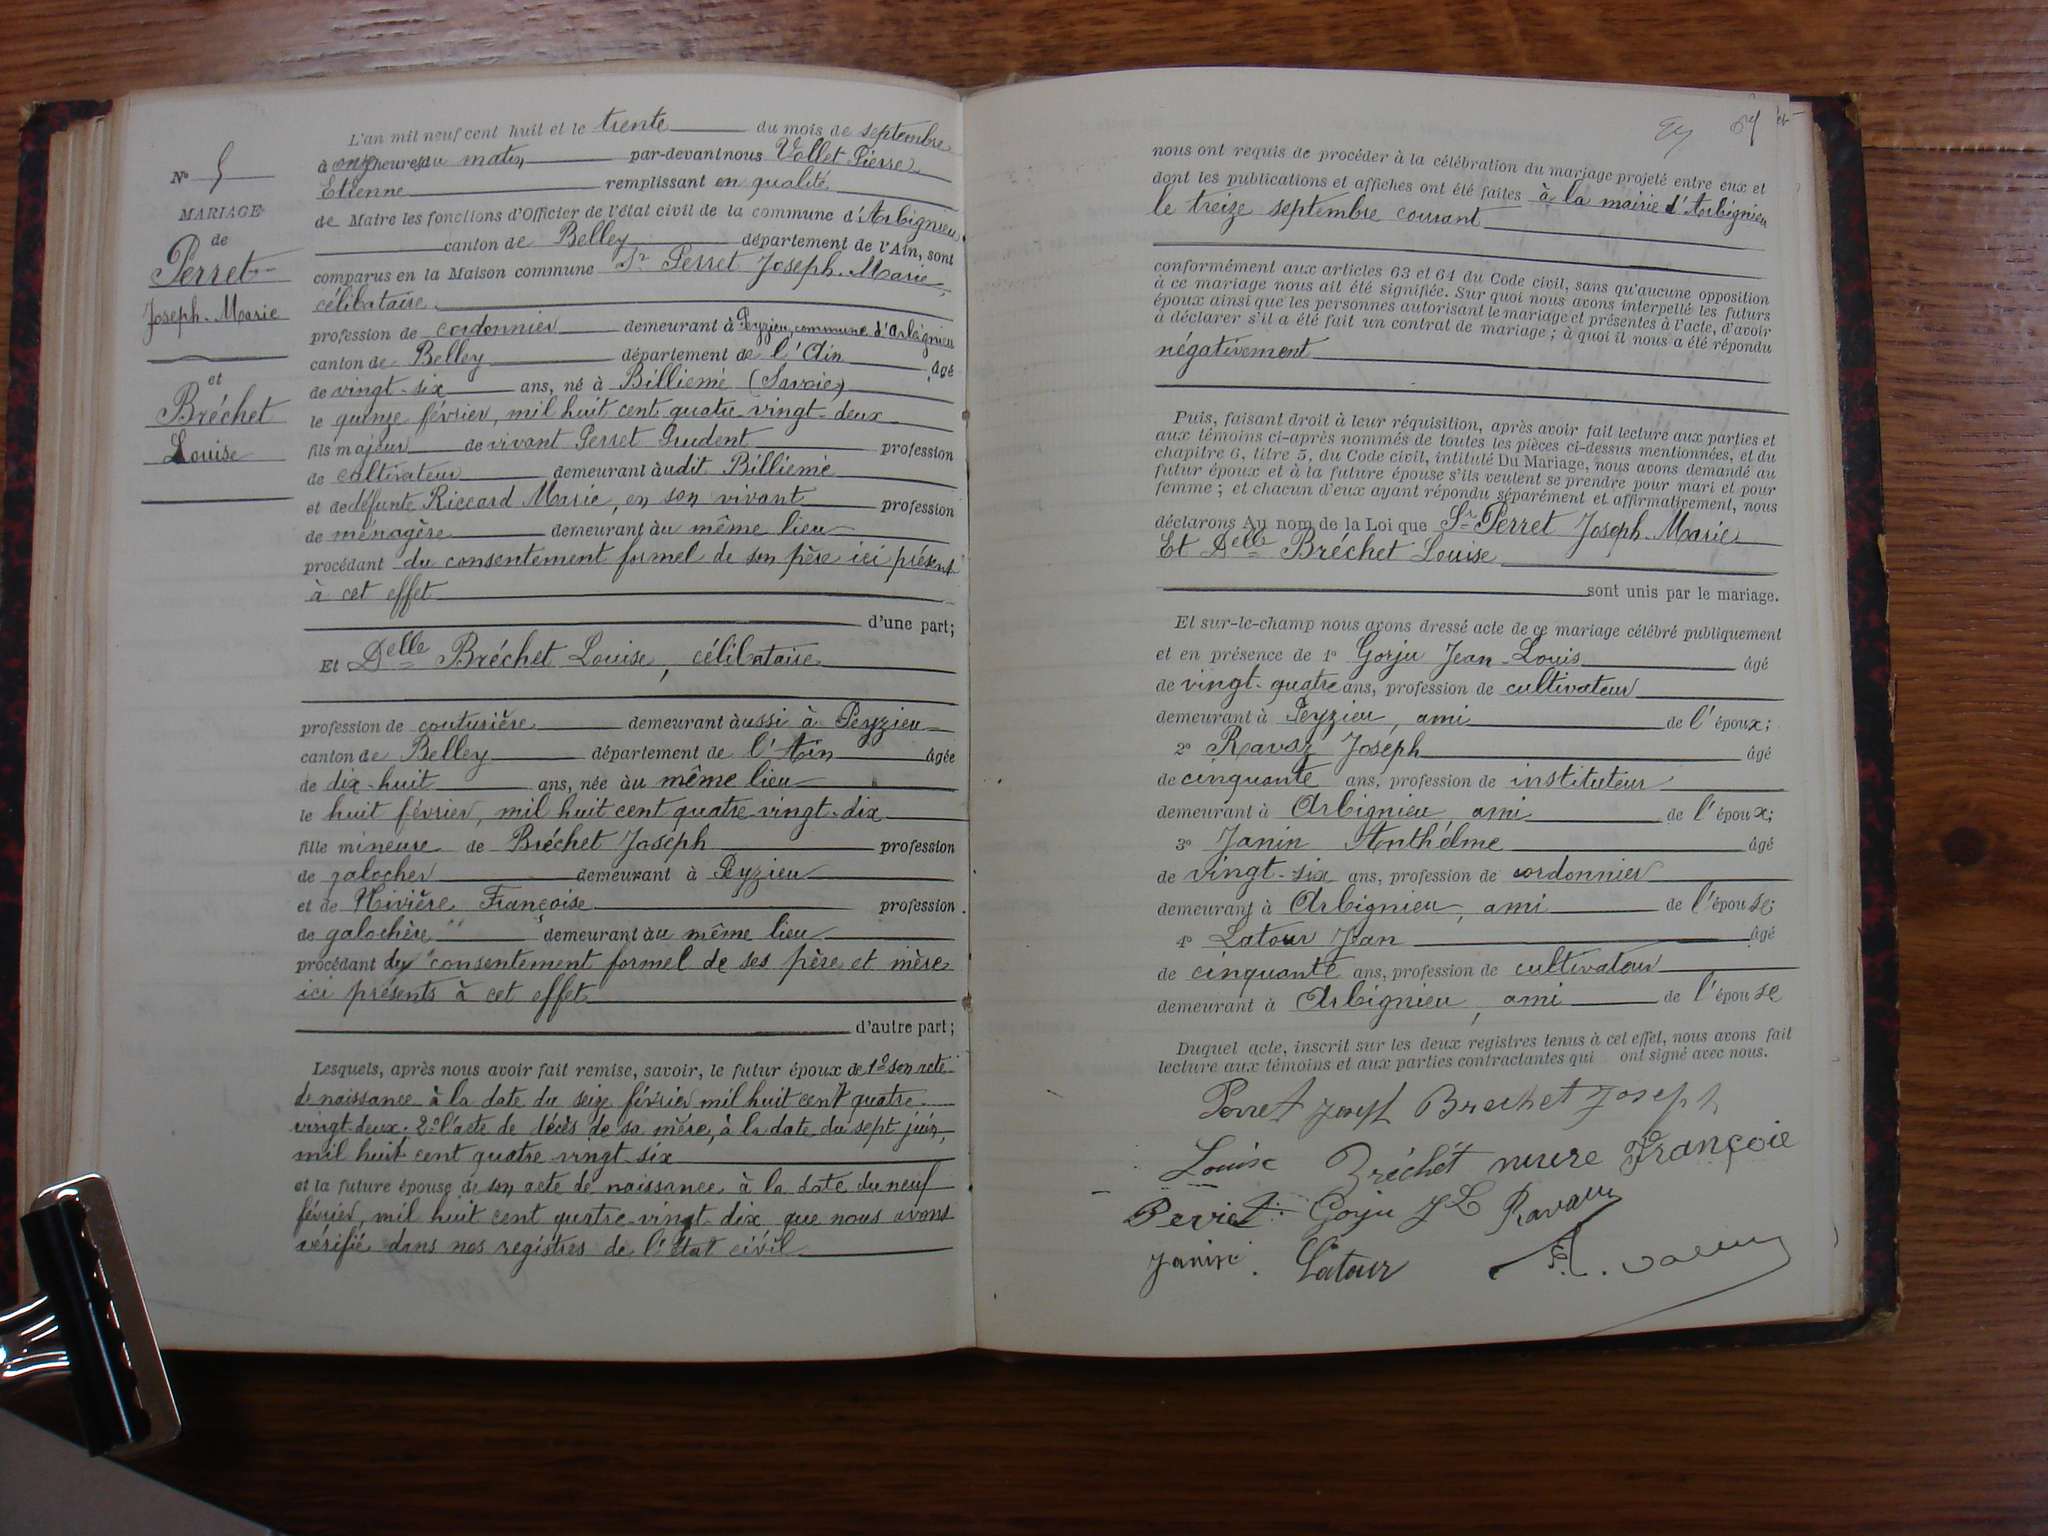 N° 5
MARIAGE
de
Perret
Joseph-Marie
et
Bréchet
Louise
L'an mil neuf cent huit et le trente du mois de septembre
à onze heures du matin par-devant nous Vollet Pierre
Etienne remplissant en qualité
de Maire les fonctions d'Officier de l'état civil de la commune d'Arbignieu
canton de Belley département de l'Ain, sont
comparus en la Maison commune Sr Perret Joseph-Marie,
célibataire
profession de cordonnier demeurant à Peyzieu, commune d'Arbignieu
canton de Belley département de l'Ain âgé
de vingt-six ans, né à Billième (Savoie)
le quinze février, mil huit cent quatre-vingt-deux
fils majeur de vivant Perret Prudent profession
de cultivateur demeurant audit Billième
et de défunte Riccard Marie, en son vivant profession
de ménagère demeurant au même lieu
procédant du consentement formel de son père ici présent
à cet effet
d'une part;
Et Delle Bréchet Louise, célibataire
profession de couturière demeurant aussi à Peyzieu
canton de Belley département de l'Ain âgée
de dix-huit ans, née au même lieu
le huit février, mil huit cent quatre-vingt-dix
fille mineure de Bréchet Joseph profession
de galocher demeurant à Peyzieu
et de Nivière Françoise profession
de galochère demeurant au même lieu
procédant du consentement formel de ses père et mère
ici présents à cet effet
d'autre part;
Lesquels, après nous avoir fait remise, savoir, le futur époux de 1° son acte
de naissance à la date du seize février mil huit cent quatre-
vingt-deux. 2° l'acte de décès de sa mère, à la date du sept juin,
mil huit cent quatre vingt-six
et la future épouse de son acte de naissance à la date du neuf
février, mil huit cent quatre-vingt-dix que nous avons
vérifié dans nos registres de l'état civil
nous ont requis de procéder à la célébration du mariage projeté entre eux et
dont les publications et affiches ont été faites à la mairie d'Arbignieu
le treize septembre courant
conformément aux articles 63 et 64 du Code civil, sans qu'aucune opposition
à ce mariage nous ait été signifiée. Sur quoi nous avons interpellé les futurs
époux ainsi que les personnes autorisant le mariage et présentes à l'acte, d'avoir
à déclarer s'il a été fait un contrat de mariage; à quoi il nous a été répondu
négativement
Puis, faisant droit à leur réquisition, après avoir fait lecture aux parties et
aux témoins ci-après nommés de toutes les pièces ci-dessus mentionnées, et du
chapitre 6, titre 5, du Code civil, intitulé Du Mariage, nous avons demandé au
futur époux et à la future épouse s'ils veulent se prendre pour mari et pour
femme; et chacun d'eux ayant répondu séparément et affirmativement, nous
déclarons Au nom de la Loi que Sr Perret Joseph-Marie
Et Delle Bréchet Louise
sont unis par le mariage.
Et sur-le-champ nous avons dressé acte de ce mariage célébré publiquement
et en présence de 1° Gorju Jean-Louis âgé
de vingt-quatre ans, profession de cultivateur
demeurant à Peyzieu, ami de l'époux;
2° Ravaz Joseph âgé
de cinquante ans, profession de instituteur
demeurant à Arbignieu, ami de l'époux;
3° Janin Anthelme âgé
de vingt-six ans, profession de cordonnier
demeurant à Arbignieu, ami de l'épouse;
4° Latour Jean âgé
de cinquante ans, profession de cultivateur
demeurant à Arbignieu, ami de l'épouse
Duquel acte, inscrit sur les deux registres tenus à cet effet, nous avons fait
lecture aux témoins et aux parties contractantes qui ont signé avec nous.
Perret Bréchet Joseph
Louise Bréchet Françoie
Perret Gorju JL
Janin Latour